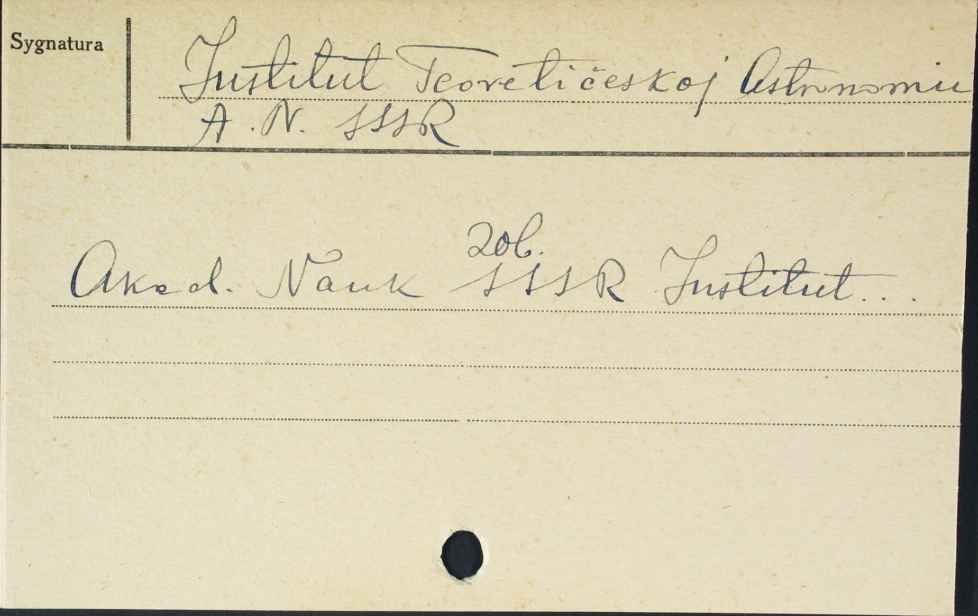 Sygnatura
Institut Teoretičeskoj Astronomii
A. N. SSSR
zob.
Akad. Nauk SSSR Institut...